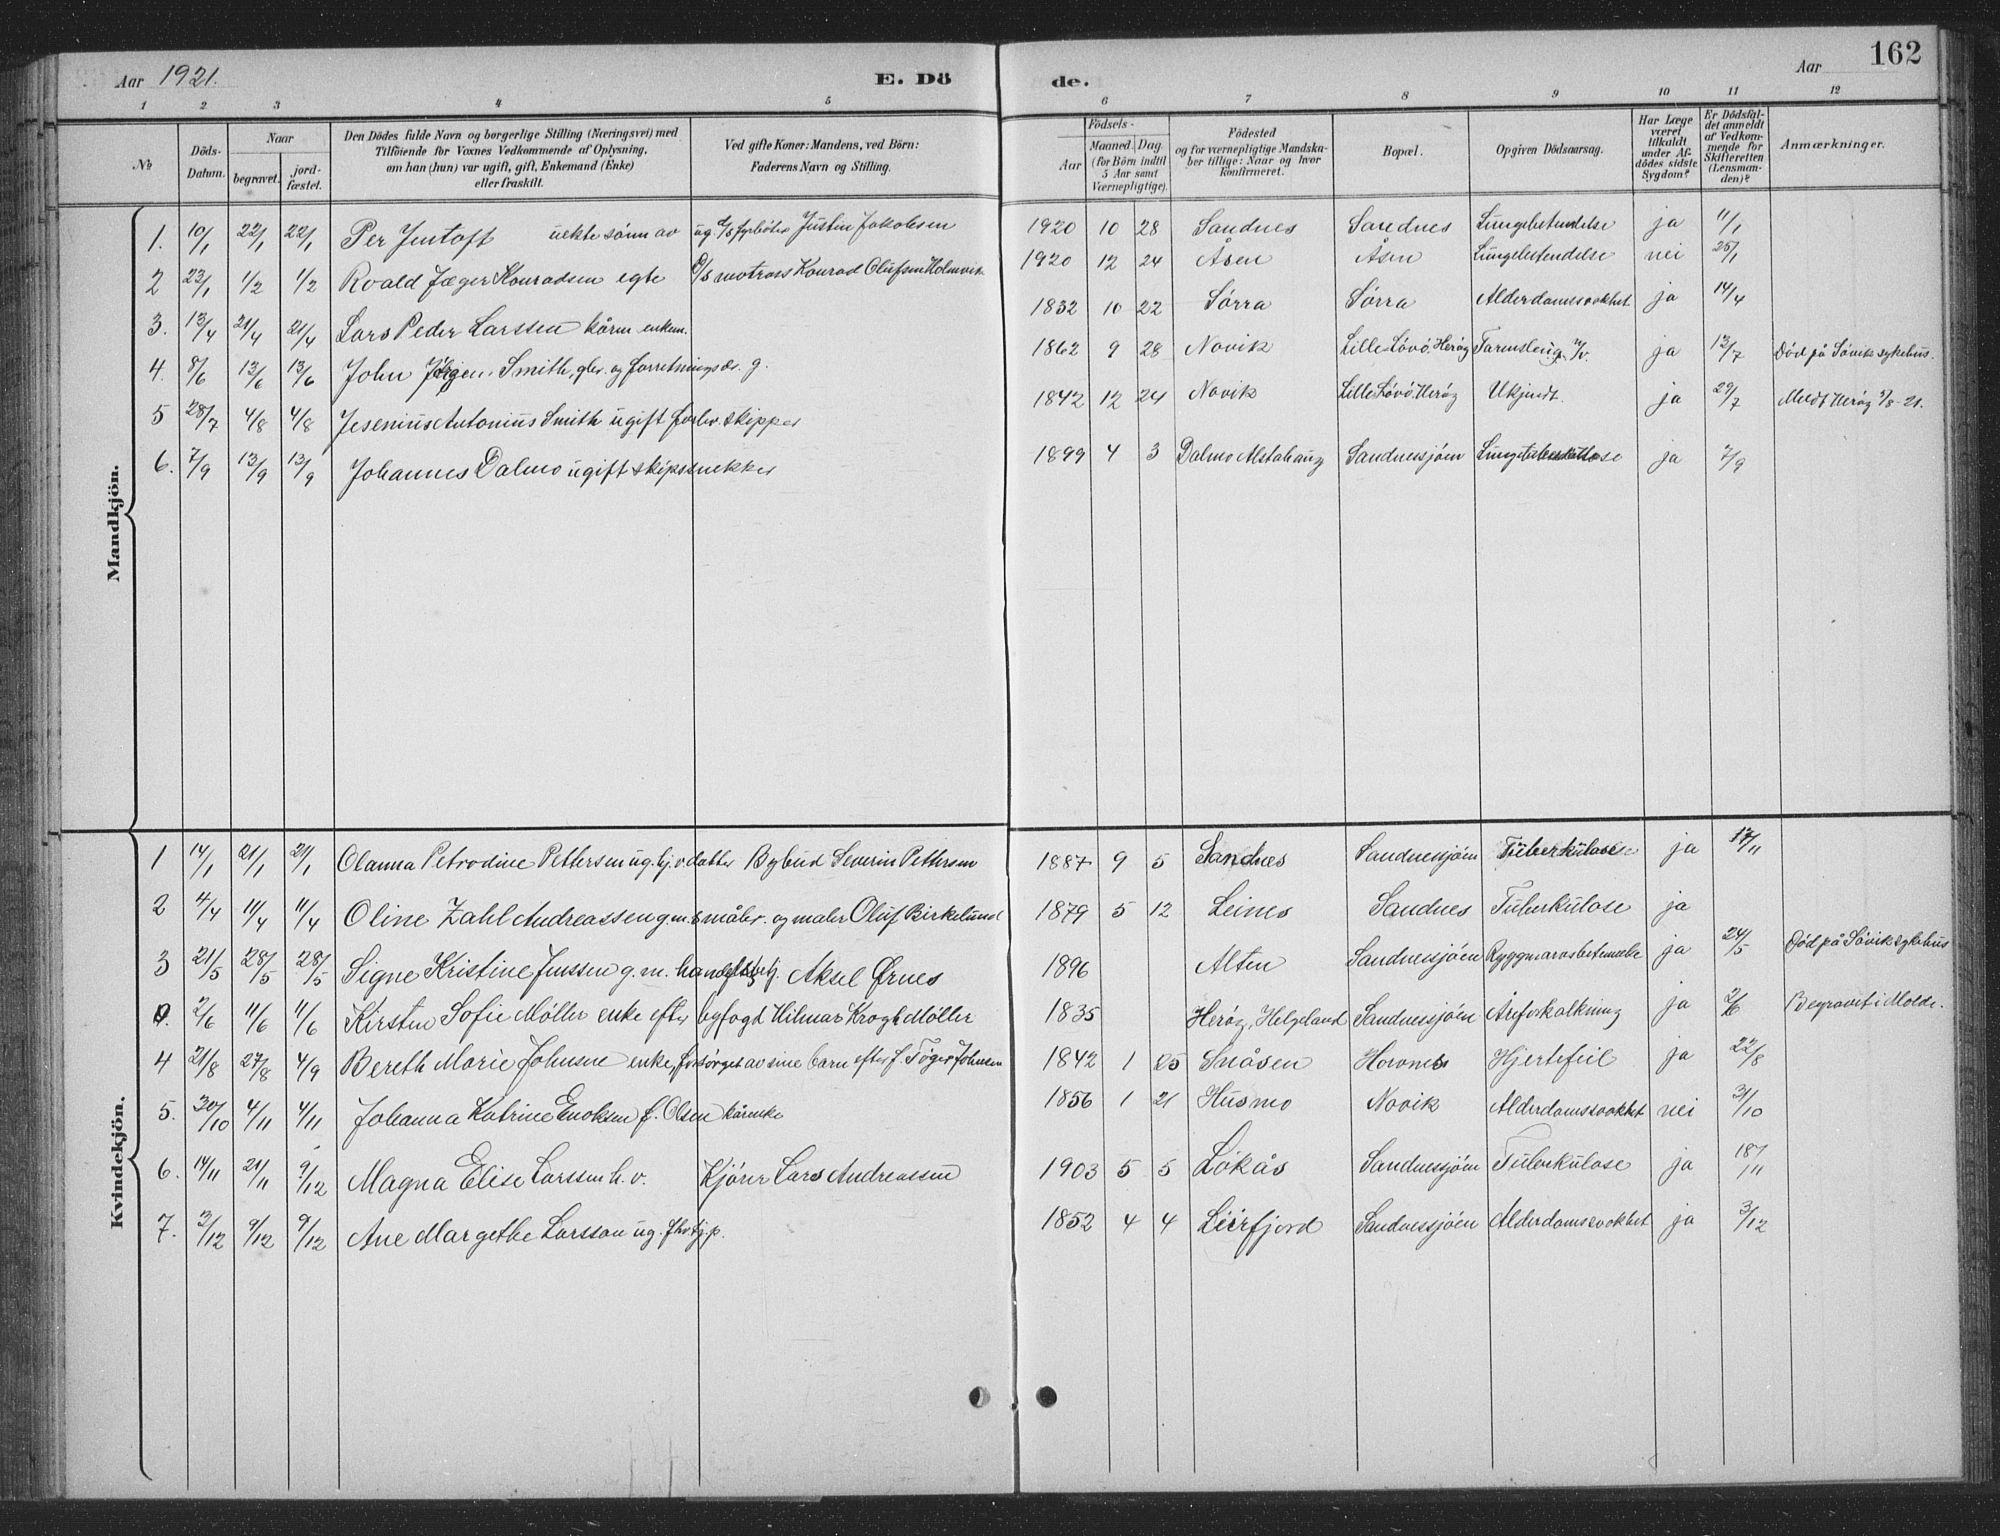 162
Aar 1921. E. Dö de. Aar
1 2 3 4 5 6 7 8 9 10 11 12
No
Döds-Datum.
Naar
begravet.
jord-fæstet.
Den Dödes fulde Navn og borgerlige Stilling (Næringsvei) med
Tilföiende for Voxnes Vedkommende af Oplysning,
om han (hun) var ugift, gift, Enkemand (Enke)
eller fraskilt.
Ved gifte Koner: Mandens, ved Börn:
Faderens Navn og Stilling.
Födsels-
Aar
Maaned Dag
(for Börn indtil
5 Aar samt
Værnepligtige).
Födested
og for værnepligtige Mandska-
ber tillige: Naar og hvor
konfirmeret.
Bopæl.
Opgiven Dödsaarsag.
Har Læge
været
tilkaldt
under Af-
dödes sidste
Sygdom?
Er Dödsfal-
det anmeldt
af Vedkom-
mende for
Skifteretten
(Lensman-
den)?
Anmærkninger.
Mandkjön.
1. 10/1 22/1 22/1 Per Jentoft uekte sønn av ug. d/s fyrbøter Justin Jakobsen 1920 10 28 Sandnes Sandnes Lungebetendelse ja 11/1
2 23/1 1/2 1/2 Roald Jæger Konradsen egte d/s motrass Konrad Olufsen Holmvik 1920 12 24 Åsen Åsen Lungebetendelse nei 25/1
3. 13/4 21/4 21/4 Lars Peder Larssen kårm enkem. 1832 10 22 Sørra Sørra Alderdomssvakhet ja 14/4
4. 8/6 13/6 13/6 John Jørgen Smith, gbr. og forretningsdr. g. 1862 9 28 Novik Lille Løvö, Herøy Tarmsleng ja 13/7 Död på Søvik sykehus.
5 28/7 4/8 4/8 Jesenius Antonius Smith ugift forhv. skipper 1842 12 24 Novik Lille Løvö, Herøy Ukjendt. ja 29/7 Meldt Herøy 3/8-21.
6. 7/9 13/9 13/9 Johannes Dalmo ugift skipssnekker 1899 4 3 Dalmo Alstahaug Sandnessjöen Lungetuberkulose ja 7/9
Kvindekjön.
1 14/1 21/1 21/1 Olanna Petrodine Pettersen ug. hj. v. datter Bybud Severin Pettersen 1887 9 5 Sandnes Sandnessjöen Tüberkülose ja 17/11
2 4/4 11/4 11/4 Oline Zahl Andreassen g. m. småbr. og maler Oluf Birkelund 1879 5 12 Leines Sandnes Tüberkülose ja
3 21/5 28/5 28/5 Signe Kristine Jenssen g. m. handelsbetj. Aksel Ørnes 1896 Alten Sandnessjöen Ryggmarvsbetennelse ja 24/5 Död på Søvik sykehus
0. 2/6 11/6 11/6 Kirsten Sofie Möller enke efter byfogt Hilmar Krogh Møller 1835 Herøy, Helgeland Sandnessjöen Åreforkalkning ja 2/6 Begravet i Molde.
4 21/8 27/8 4/9 Bereth Marie Johnsne enke, forsørget av sine barn efter f. Tøger Johnsen 1842 1 25 Snåsen Horvnes Hjertefeil ja 22/8
5. 30/10 4/11 4/11 Johanna Katrine Enoksen f. Olsen kårenke 1856 1 21 Husmo Novik Alderdomssvakhet nei 31/10
6. 14/11 21/11 9/12 Magna Elise Larssen h. v. Kjører Lars Andreassen 1903 5 5 Løkås Sandnessjöen Tüberkülose ja 18/11
7. 3/12 9/12 9/12 Ane Margethe Larsson ug. fhv. tj. p. 1852 4 4 Leirfjord Sandnessjöen Alderdomssvakhet ja 3/12